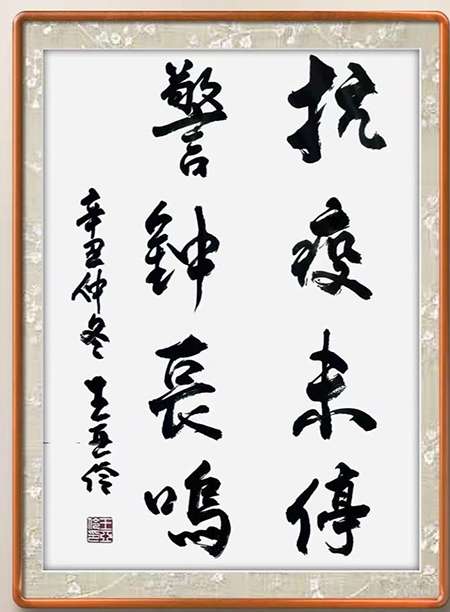 抗疫未停
警钟長鳴
辛丑仲冬 王亚伶